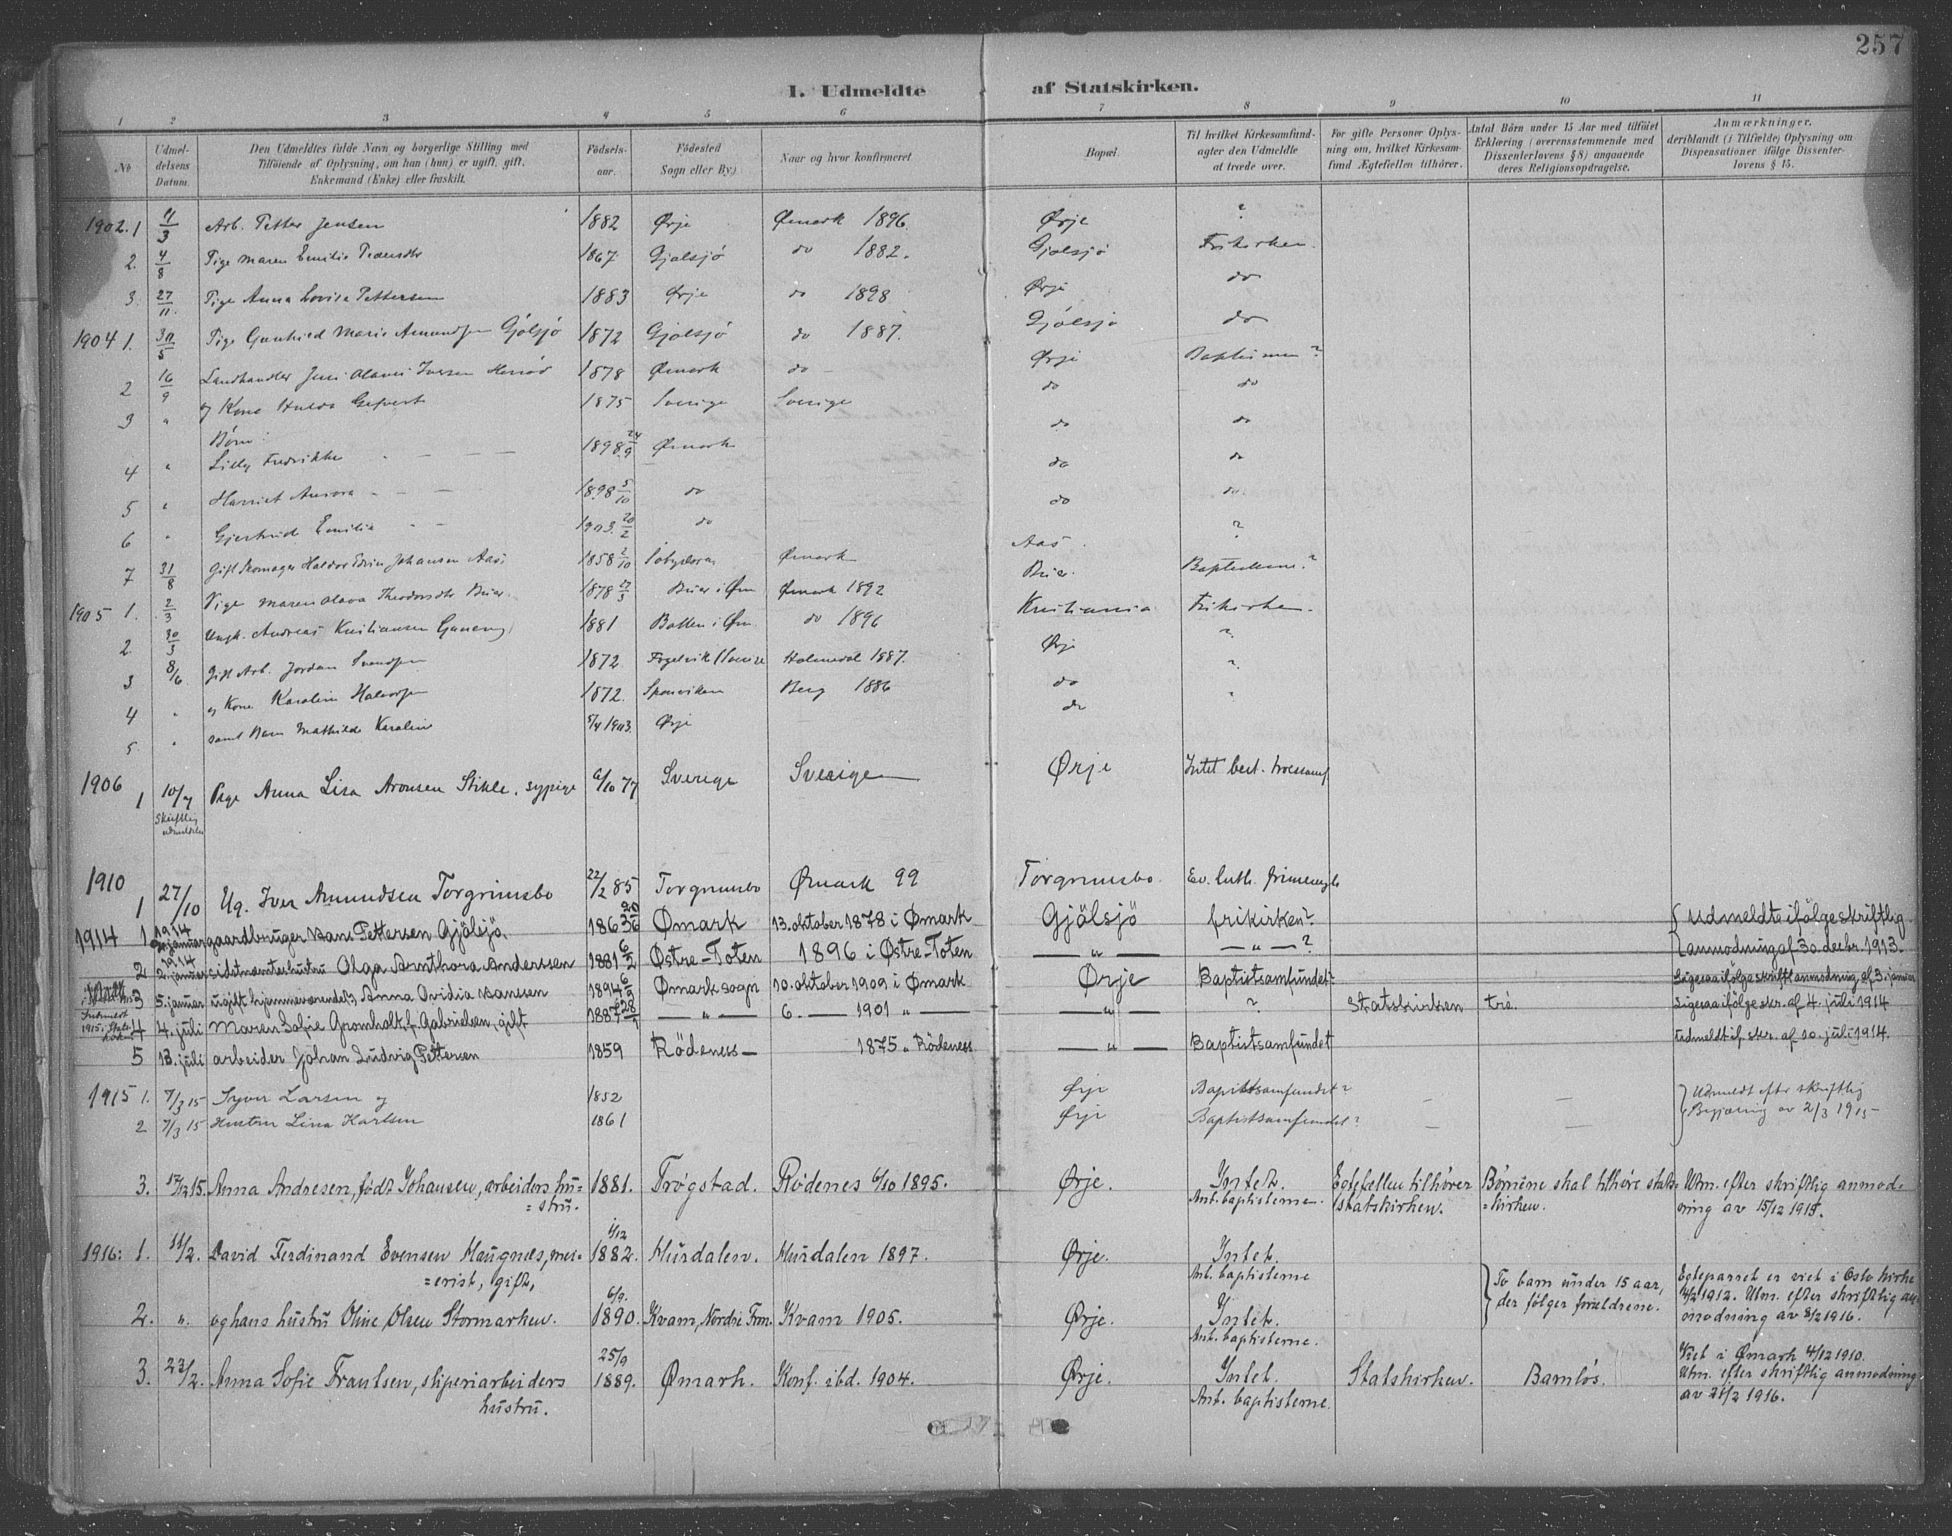 257
1. Udmeldte af Statskirken.
1 2 3 4 5 6 7 8 9 10 11
No
Udmeldelsens Datum.
Den Udmeldtes fulde Navn og borgerlige Stilling med
Tilföiende af Oplysning, om han (hun) er ugift, gift,
Enkemand (Enke) eller fraskilt.
Födselsaar.
Födested
Sogn eller By.)
Naar og hvor konfirmeret
Bopæl.
Til hvilket Kirkesamfund-
agter den Udmeldte
at træde over.
For gifte Personer Oplys-
ning om, hvilket Kirkesam-
fund Ægtefællen tilhörer.
Antal Börn under 15 Aar med tilföiet
Erklæring (overensstemmende med
Dissenterlovens § 8) angaaende
deres Religionsopdragelse.
Anmærkninger,
deriblandt (i Tilfælde) Oplysning om
Dispensationer ifölge Dissenter-
lovens § 15.
1902. 1 11/3 Arb. Petter Jensen 1882 Ørje Ømark 1896 Ørje ?
2. 4/8 Pige Maren Emilie Pedersdtr 1867 Gjølsjø do 1882. Gjølsjö Frikirken.
3. 27/11. Pige Anna Lovisa Pettersen 1883 Ørje do 1898 Ørje do
1904 1. 30/5 Pige Gunhild Marie Amundsen Gjölsjö 1872 Gjølsjö do 1887. Gjölsjø do
2 16/9 Landhandler Jens Olaves Iversen 1878 Ømark do - Ørje Baptismen?
3 " og Kone Hulda 1875 Sverige Sverige do do
Børn:
4 " Lilly Fredrikke 1898 24/9 Ømark do do
5 " Harriet Aurora 1898 5/10 do do do
6 " Gjertrud Emilie 1903. 20/2 do do do
7 31/8 Gift Skomager Haldor Edvin Johansen Aas 1858 2/10 Ømark Aas ?
1905 1. 2/3 Pige Maren Olava Theodorsdtr Buer 1878 27/3 Buer i Øm Ømark 1892 Buer. Baptisterne?
2. 30/3 Ungk. Andreas Kristiansen 1881 i Øm do 1896 Kristiania Frikirken.
3 8/6 Gift Arb. Jordan Svendsen 1872 Holmedal 1887. Ørje ?
4 " og Kone Karoline Halvorsen 1872. Sponviken Berg 1886 do ?
5. " samt Barn Mathilde Karoline 5/4 1903. Ørje do "
1906 1 10/7 Pige Anna Lisa Aronsen Stikle, sypige 6/10 77 Sverige Sverige Ørje Intet best. troessamf
Skriftlig udmeldelse
1910 1 27/10 Ug. Iver Amundsen Torgrimsbo 22/2 85 Torgrimsbo Ømark 99 Torgrimsbo. Ev. luth. frimenigh
1914 1 1914 2. januar gaardbruger Hans Pettersen Gjölsjö. 1863 Ømark 13. oktober 1878 i Ømark Gjölsjö frikirken? { Udmeldte ifölge skriftlig
2 1914 2. januar sidstnævntes hustru Olga Arnthora Anderssen 1881 6/2 Østre-Toten 1896 i Østre-Toten — " — — " — ? anmodning af 30. decbr. 1913.
3 5. januar ugift hjemmeværende Anna Ovidia Hanssen 1894 6/9 Ømark sogn 10. oktober 1909 i Ømark Ørje Baptistsamfundet? Ligesaa ifölge skriftl anmodning af 3. januar
4 4. juli Maren Sofie Gromholt f. Gabrielsen, gift 1887 — " — 6. — 1901 " — — " — ? Statskirken tre. Ligesaa ifölge skr. af 4. juli 1914
5 13. juli arbeider Johan Ludvig Pettersen 1859 Rödenes— 1875 " Rödenes — " — Baptistsamfundet Udmeldt if. skr. af 10. juli 1914.
1915 1. 7/3 15 Syver Larsen og 1852 Ørje Baptistsamfundet? — — } Udmeldt efter skriftlig
2 7/3 15 Hustru Lina Karlsen 1861 Ørje Baptistsamfundet? — — Begjæring av 2/3 1915 -
3. 17/12 15. Anna Andresen, født Johansen, arbeiders hu= 1881. Trøgstad. Rødenes 6/10 1895. Ørje. Intet. Egtefællen tilhører Børnene skal tilhøre stats= Utm. efter skriftlig anmod-
=stru. Ant. baptisterne. statskirken. =kirken. ning av 15/12 1915.
1916: 1. 11/2. David Ferdinand Evensen Haugnæs, mei= 1/12 1882. Hurdalen. Hurdalen 1897. Ørje. Intet.
=erist, gift, Ant. baptisterne } To barn under 15 aar, Egteparret er viet i Oslo kirke
der følger forældrene. 1912. Utm. efter skriftlig an-
2. " og hans hustru Oline Olsen Stormarken. 6/9. 1890. Kvam, Nordre Fron. Kvam 1905. Ørje. Intet. modning av 8/2 1916.
Ant. baptisterne.
3. 23/2. Anna Sofie Frantsen, sliperiarbeiders 25/9 1889. Ømark. Konf. ibd. 1904. Ørje. Intet. Statskirken. Barnløs. Viet i Ømark 4/12 1910.
hustru. Ant. baptisterne. Utm. efter skriftlig anmodning
av 21/2 1916.